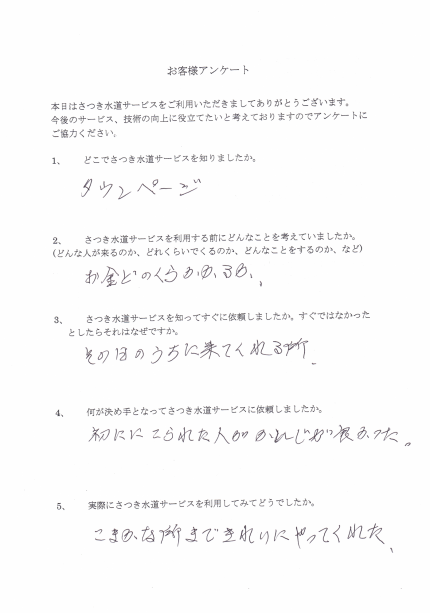 お客様アンケート
本日はさつき水道サービスをご利用いただきましてありがとうございます。
今後のサービス、技術の向上に役立てたいと考えておりますのでアンケートに
ご協力ください。
1、 どこでさつき水道サービスを知りましたか。
タウンページ
2、 さつき水道サービスを利用する前にどんなことを考えていましたか。
(どんな人が来るのか、どれくらいでくるのか、どんなことをするのか、など)
お金どのくらいかかるか、
3、 さつき水道サービスを知ってすぐに依頼しましたか。すぐではなかった
としたらそれはなぜですか。
そのほのうちに来てくれる所
4、 何が決め手となってさつき水道サービスに依頼しましたか。
初にこられた人がかんじが良かった。
5、 実際にさつき水道サービスを利用してみてどうでしたか。
こまかな所まできれいにやってくれた、